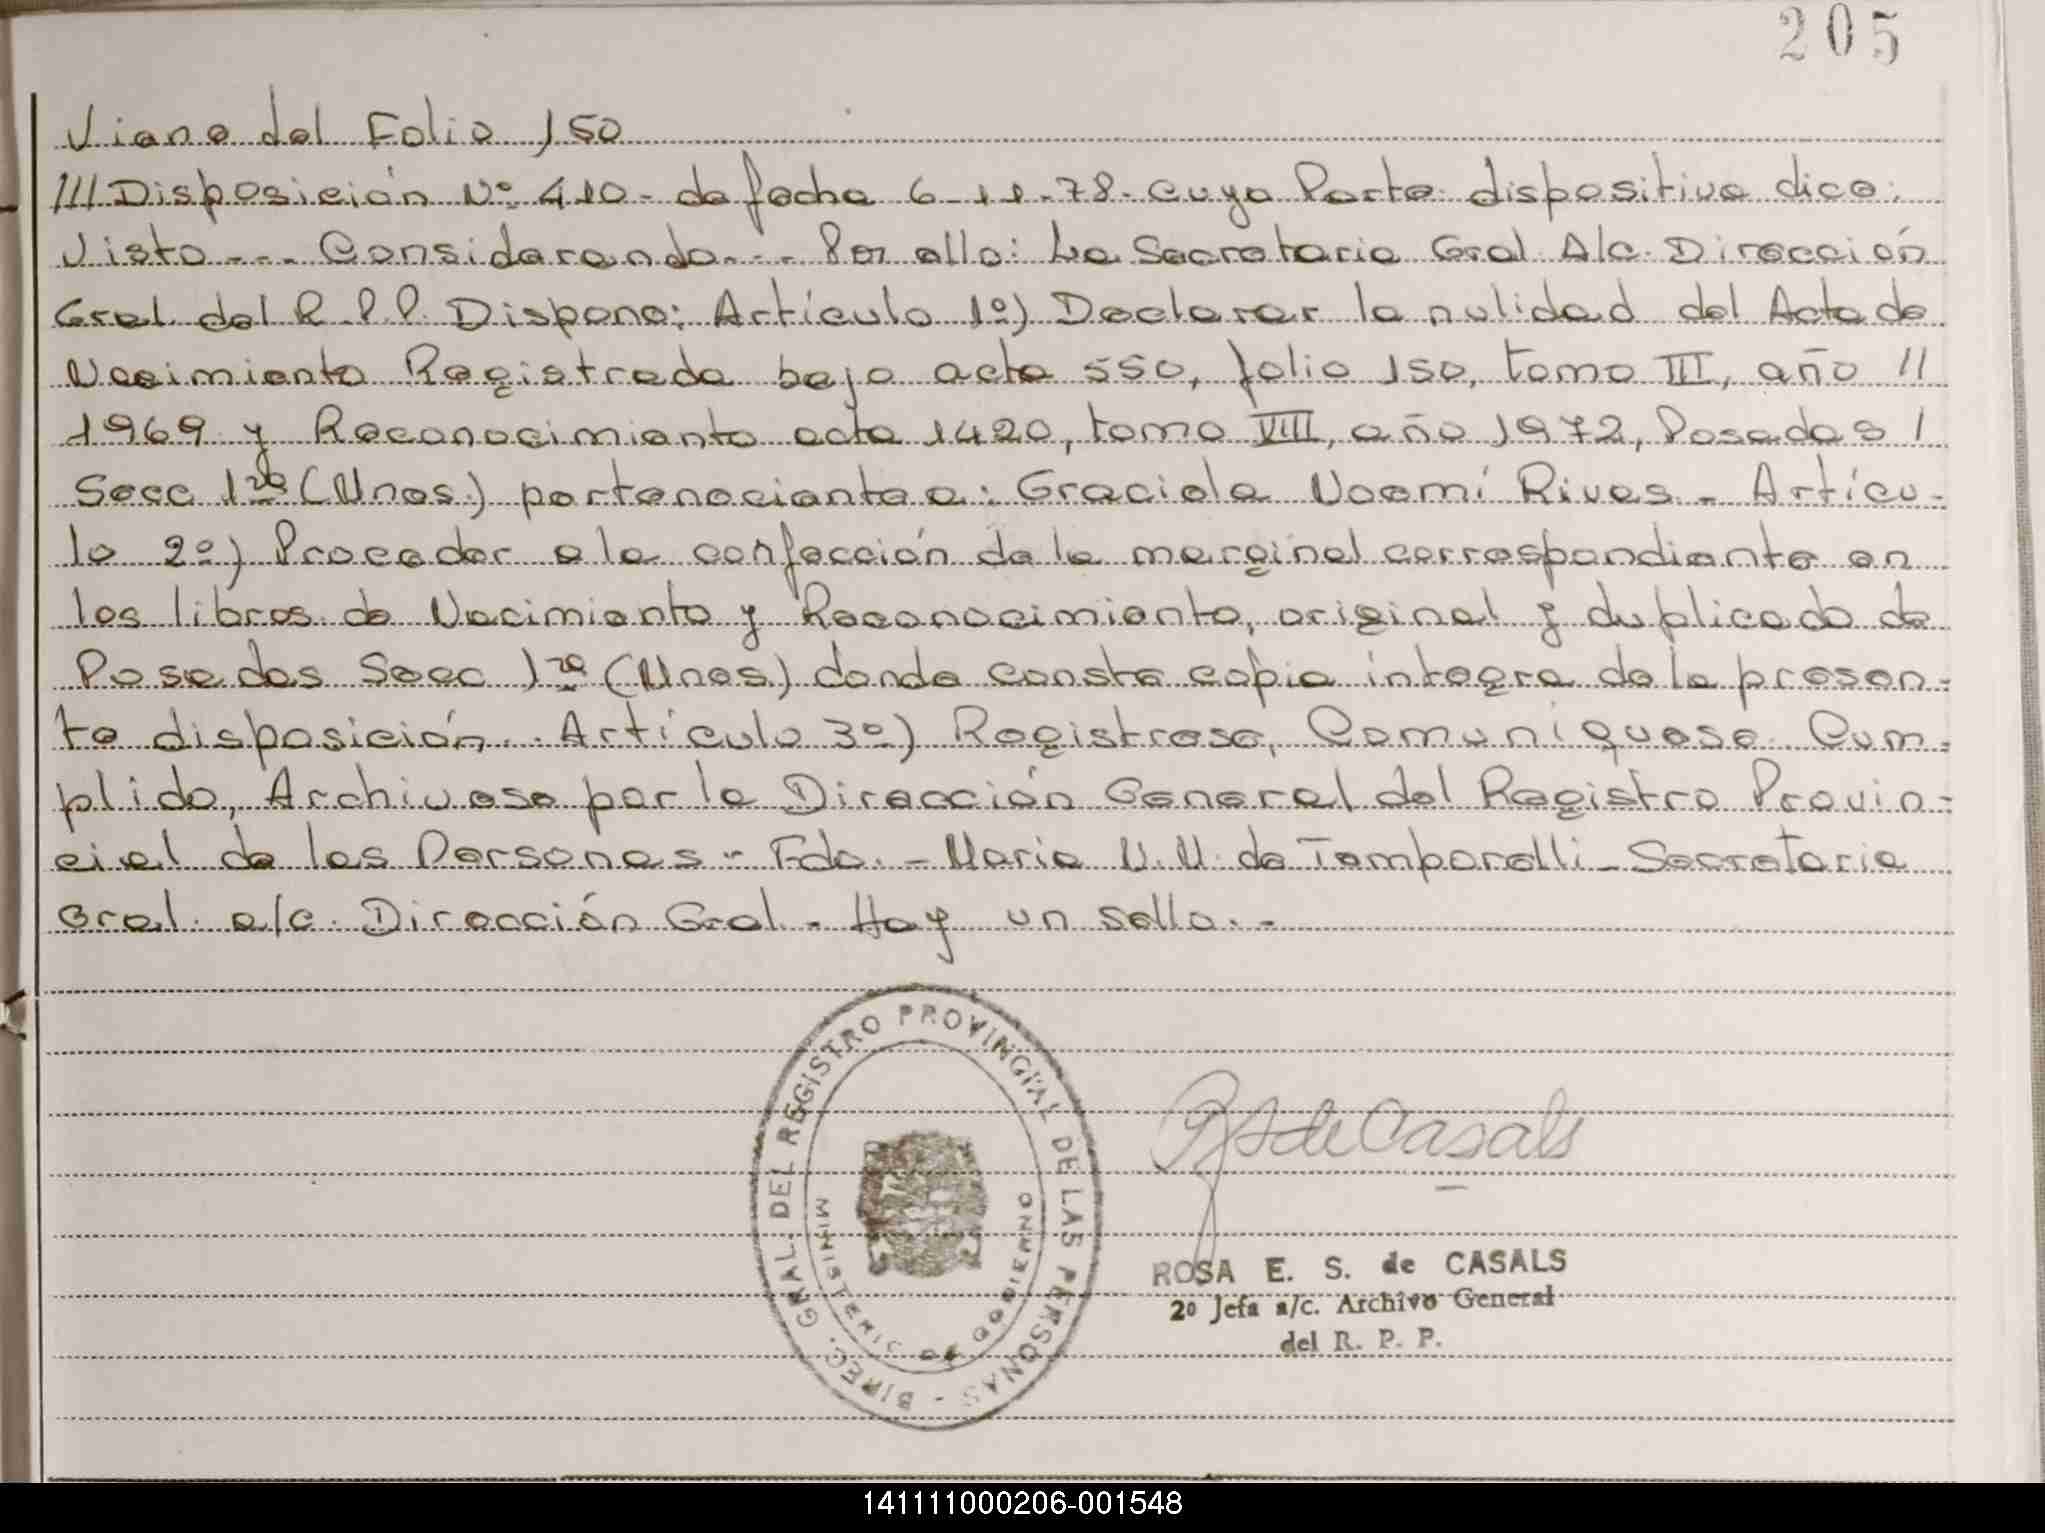 205
Viene del Folio 150
/// Disposición Nº 410- de fecha 6-11-78- cuya Parte dispositiva dice:
Visto--- Considerando--- Por ello: La Secretaria Gral A/c. Dirección
Gral del R.P.P. Dispone: Artículo 1º) Declarar la nulidad del Acta de
Nacimiento Registrada bajo acta 550, folio 150, tomo III, año //
1969 y Reconocimiento acta 1420, tomo VIII, año 1972, Posadas /
Secc 1ra (Unos) perteneciente a: Graciela Noemí Rivas - Artícu-
lo 2º) Proceder a la confección de la marginal correspondiente en
los libros de Nacimiento y Reconocimiento, original y duplicado de
Posadas Secc 1ra (Unos) donde consta copia íntegra de la presen-
te disposición. Artículo 3º) Registrese, Comuníquese Cum-
plido, Archivese por la Dirección General del Registro Provin-
cial de las Personas - Fdo. - Maria N. M. de Temporelli - Secretaria
Gral. a/c. Dirección Gral. - Hay un sello. -
DIREC. GRAL. DEL REGISTRO PROVINCIAL DE LAS PERSONAS -
MINISTERIO DE GOBIERNO
R S de Casals
ROSA E. S. de CASALS
2º Jefa a/c. Archivo General
del R. P. P.
141111000206-001548